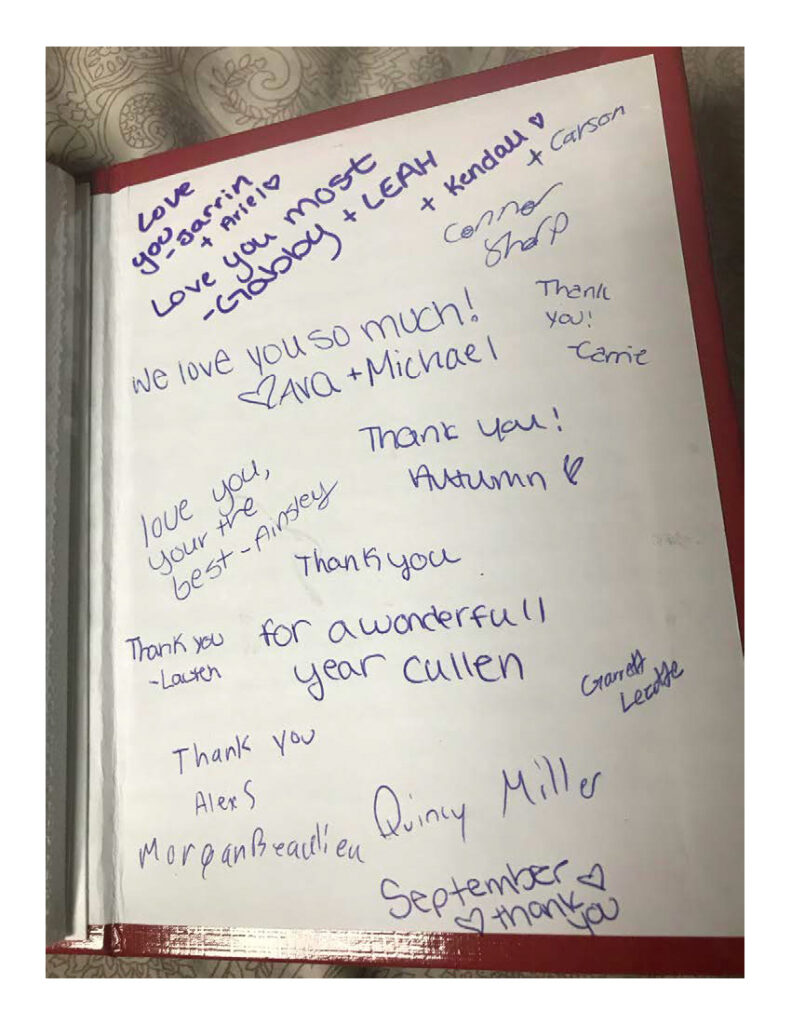 Love
you
- Jarrin
+ Ariel ♡
Love you most
- Gabby + LEAH + Kendall ♡ + Carson
Connor
Sharp
Thank
you!
- Carrie
We love you so much!
♡ Ava + Michael
Thank you!
Autumn ♡
love you,
your the
best - Ainsley
Thank you
for a wonderfull
year cullen
Thank you
- Lauren
Garrett
Thank you
Alex S
Quincy Miller
Morgan Beaulieu
September ♡
♡ thank you